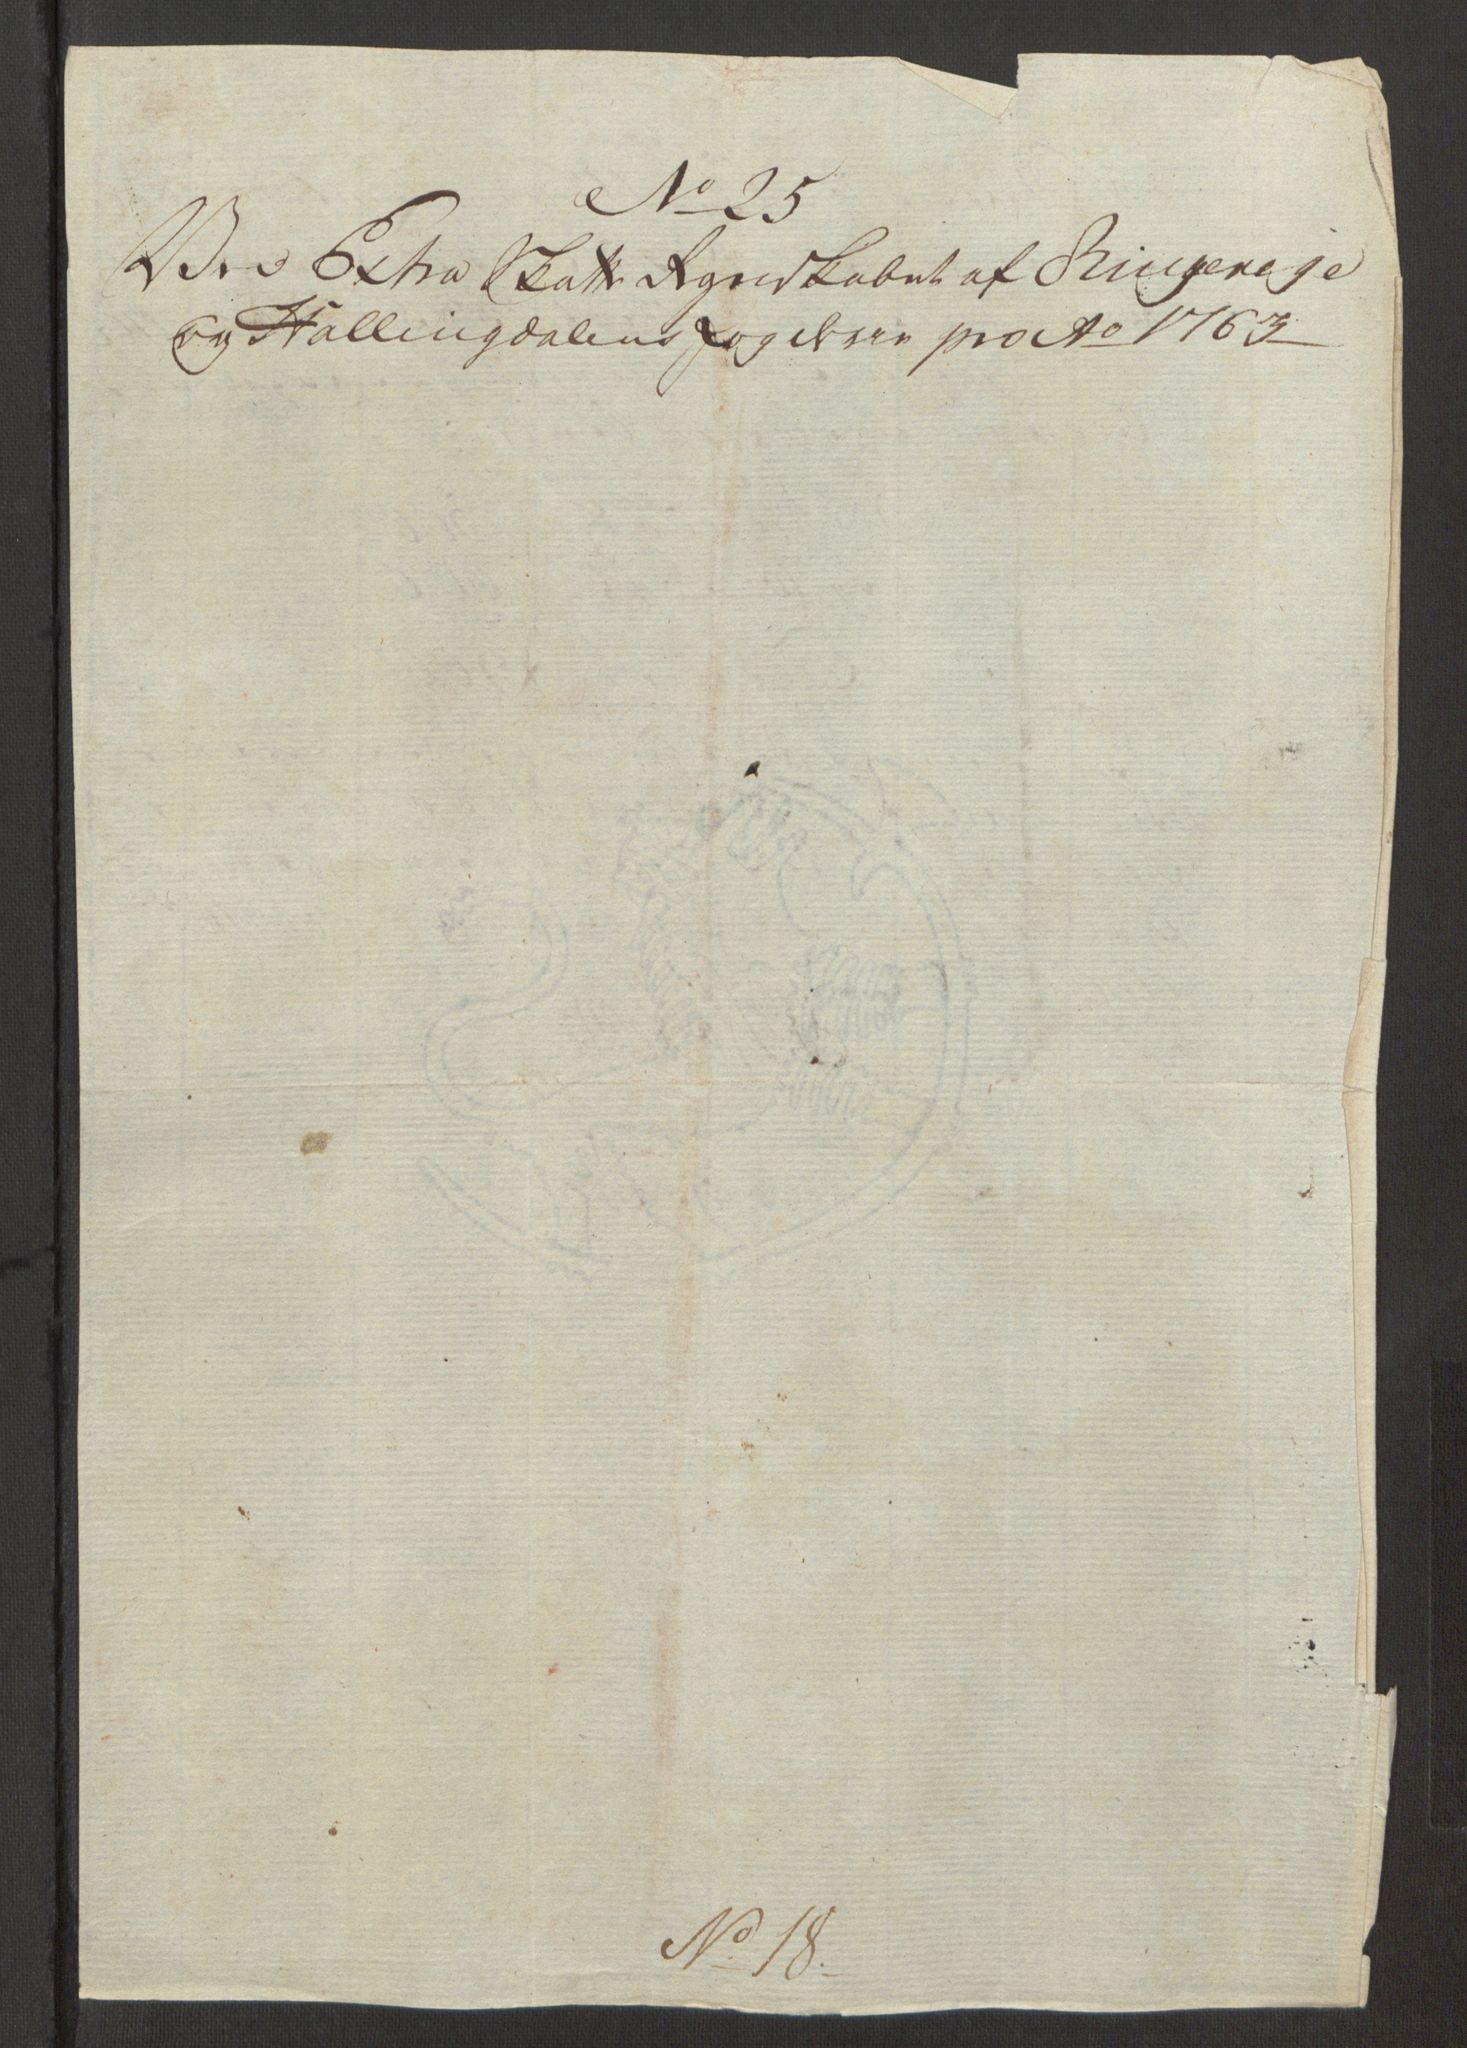 No 25
Ved Extra Skatte Regnskabet af Ringerige
og Hallingdalens fogderie pro Ao 1763
No 18.